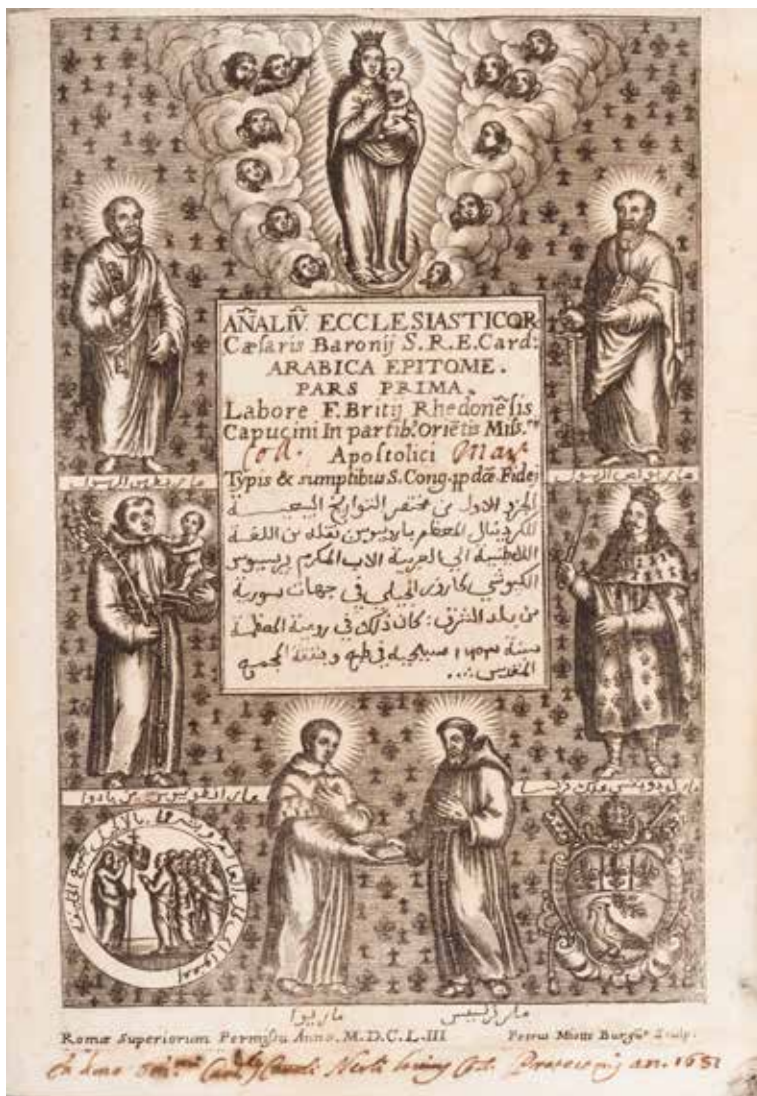 AÑALIV̂. ECCLESIASTICOR
Cæsaris Baronij S. R. E. Card:
ARABICA EPITOME.
PARS PRIMA.
Labore F. Britij Rhedonẽsis
Capucini In partib.ˢ Oriẽtis Miss.
Apostolici
Typis & sumptibus S. Cong. ꝓp dæ Fidei
مار بطرس الرسول
مار بولس الرسول
الجزو الاول من مختصر التواريخ البيعيــة
للكردينال المعظم بارونيوس نقله من اللغة
اللاطينية الي العربية الاب المكرم بريسيوس
الكبوشي الكاروز الانجيلي في جهات سورية
من بلد الشرق: كان ذلك في رومية العظمة
سنة ١٦٥٣ مسيحية في طبع ونفقة المجمع
المقدس
مار انطونيوس من بادوا
مار لودويكس ملك فرنسا
مار ايوا
مار فرنسيس
Romæ Superiorum Permissu Anno. M.D.C.L.III
Petrus Miotte Burgũˢ Sculp.
an. 1651